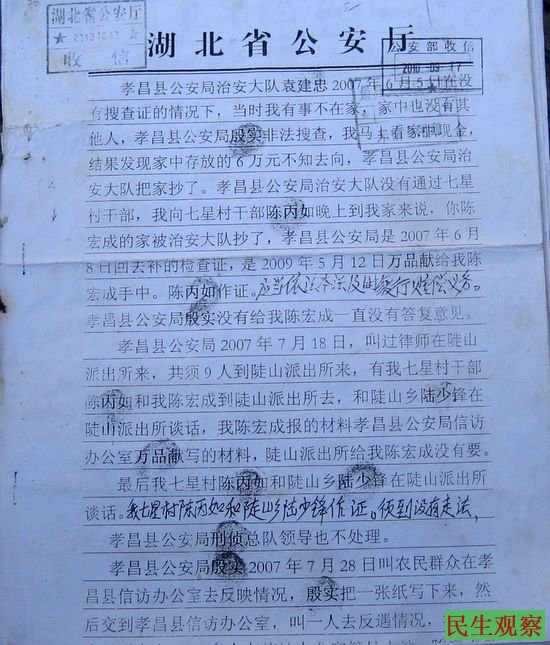 湖北省公安厅
2010 10 12
收信
湖北省公安厅
公安部收信
孝昌县公安局治安大队袁建忠2007年6月5日在没
有搜查证的情况下，当时我有事不在家，家中也没有其
他人，孝昌县公安局殷实非法搜查，我马上看家中现金，
结果发现家中存放的6万元不知去向，孝昌县公安局治
安大队把家抄了。孝昌县公安局治安大队没有通过七星
村干部，我向七星村干部陈丙如晚上到我家来说，你陈
宏成的家被治安大队抄了，孝昌县公安局是2007年6月
8日回去补的检查证，是2009年5月12日万品献给我陈
宏成手中。陈丙如作证。应当依法履行赔偿义务。
孝昌县公安局殷实没有给我陈宏成一直没有答复意见。
孝昌县公安局2007年7月18日，叫过律师在陡山
派出所来，共须9人到陡山派出所来，有我七星村干部
陈丙如和我陈宏成到陡山派出所去，和陡山乡陆少锋在
陡山派出所谈话，我陈宏成报的材料孝昌县公安局信访
办公室万品献写的材料，陡山派出所给我陈宏成没有要。
最后我七星村陈丙如和陡山乡陆少锋在陡山派出所
谈话。我七星村陈丙如和陡山乡陆少锋作证。使到没有走法，
孝昌县公安局刑侦总队领导也不处理。
孝昌县公安局殷实2007年7月28日叫农民群众在孝
昌县信访办公室去反映情况，殷实把一张纸写下来，然
后交到孝昌县信访办公室，叫一人去反遇情况，
民生观察